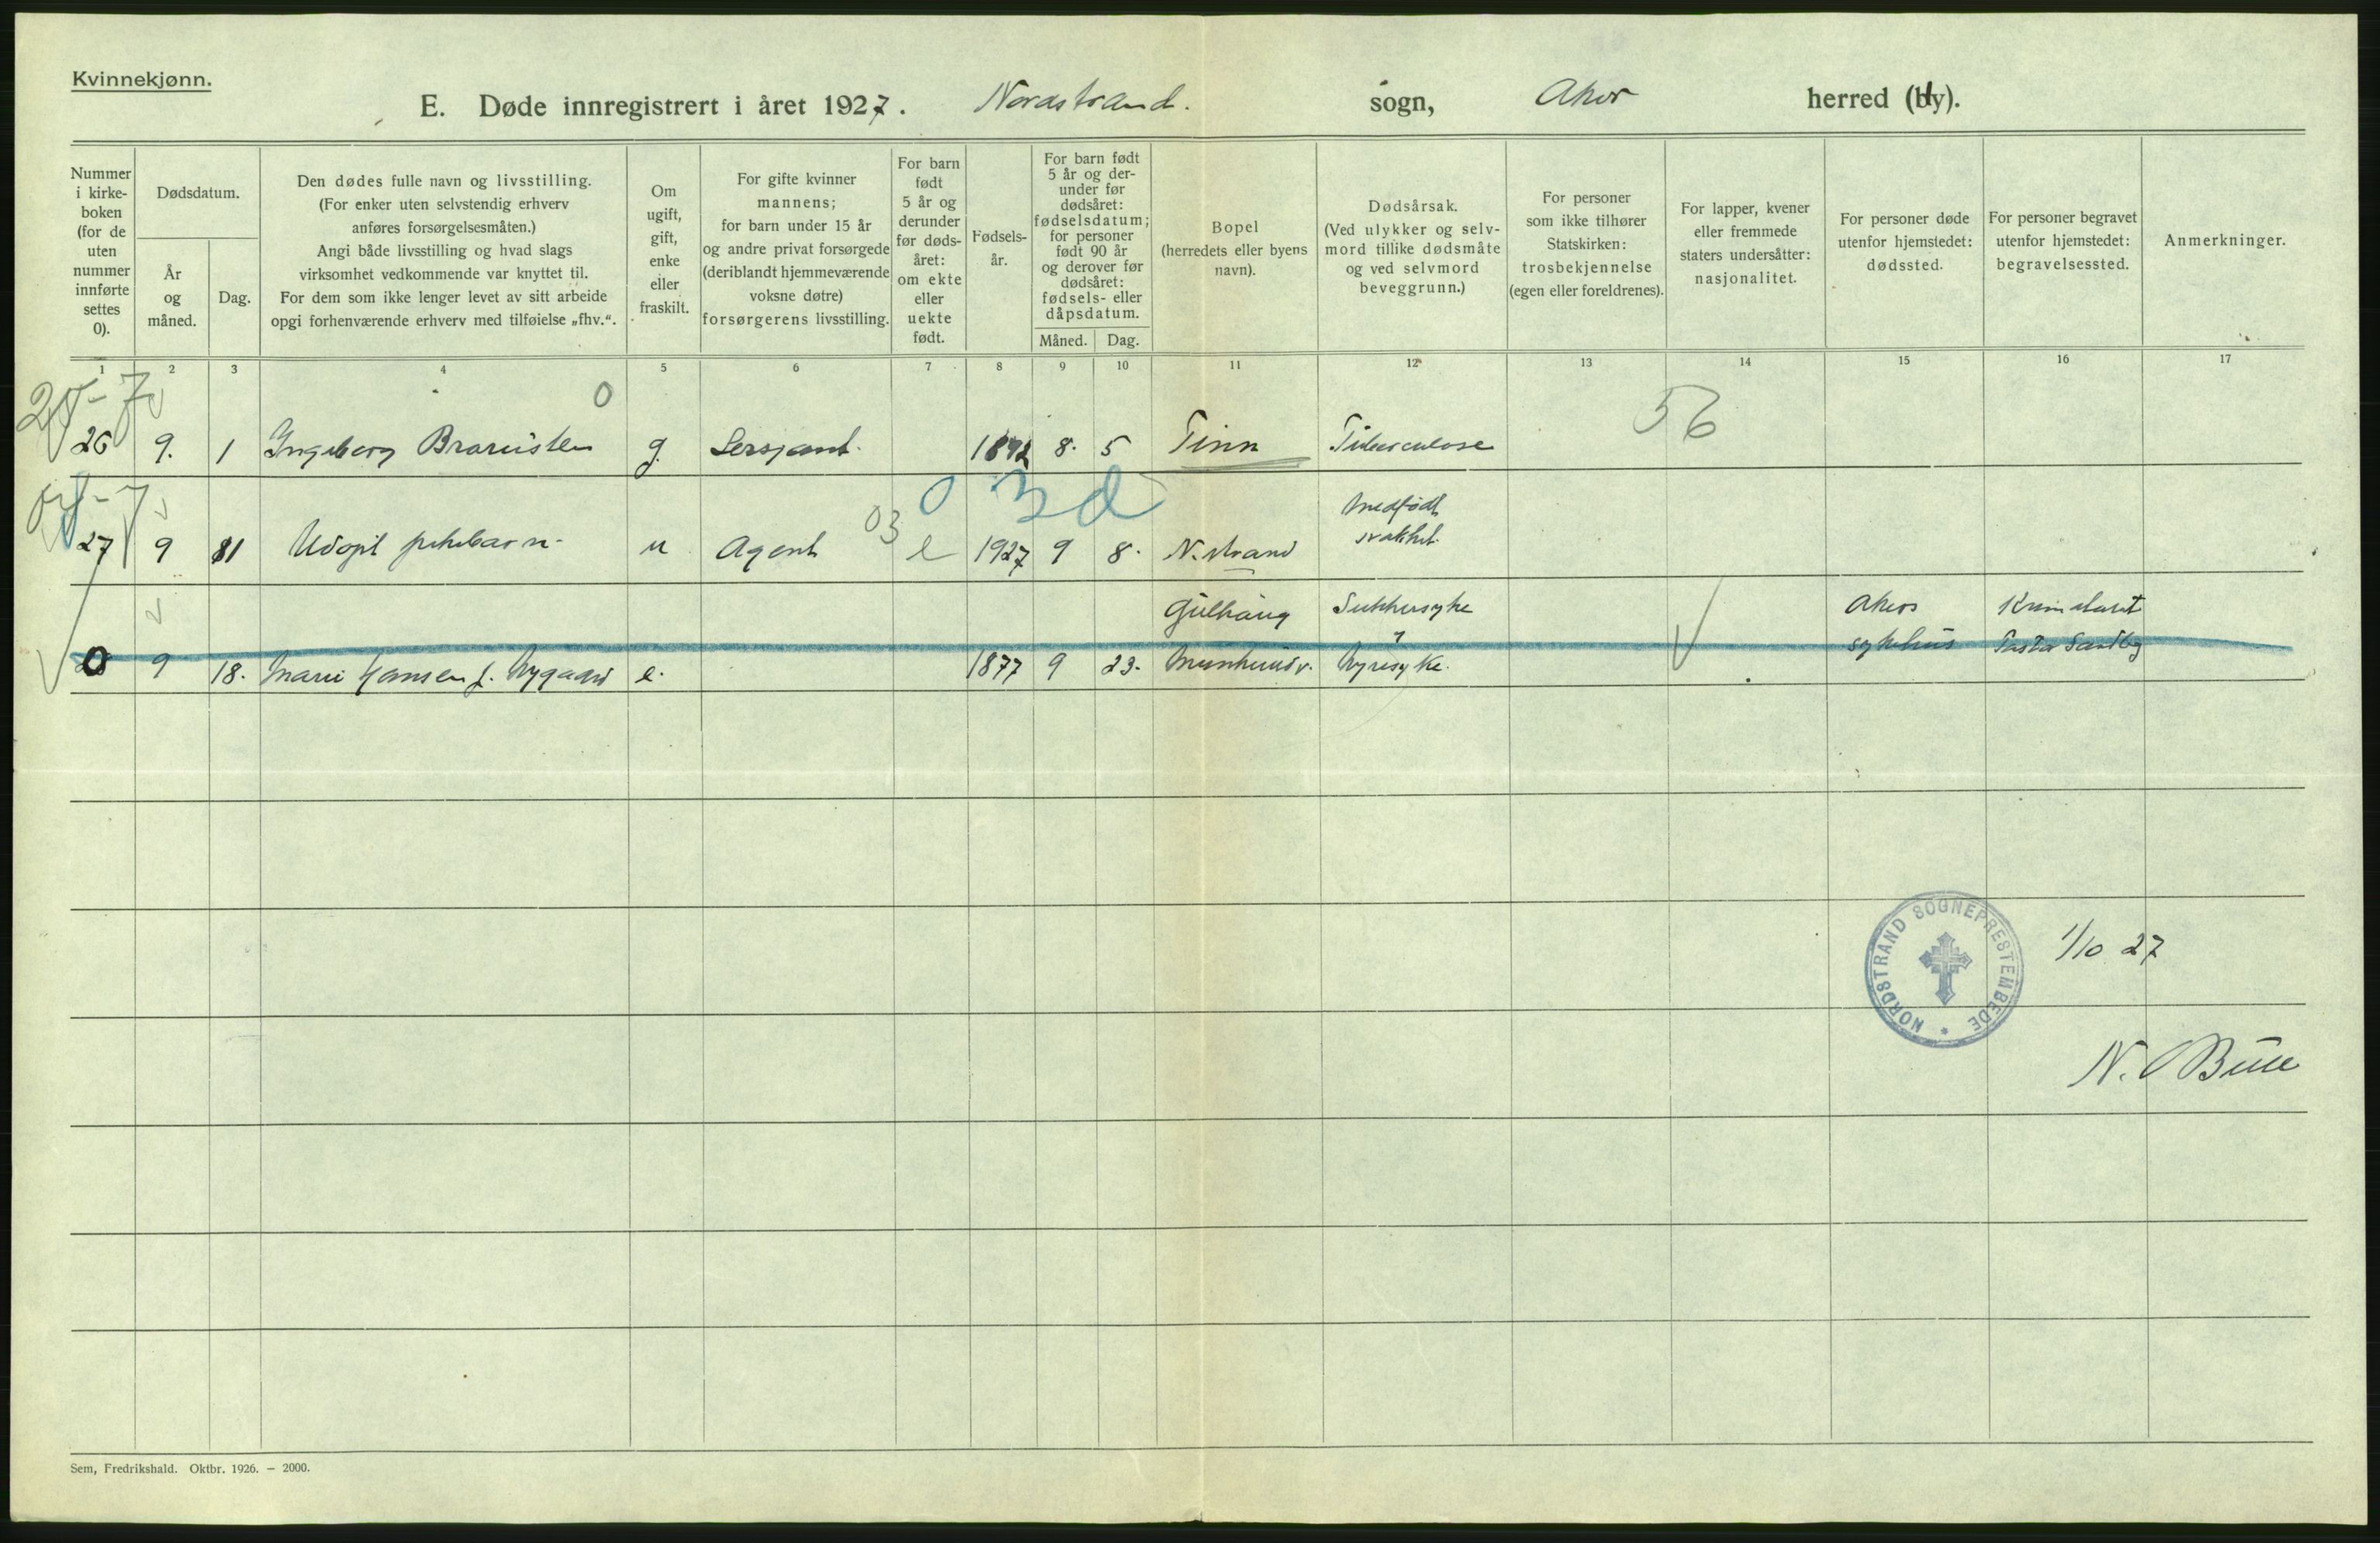 Kvinnekjønn.
E. Døde innregistrert i året 1927. Nordstrand. sogn, Aker herred (by).
Nummer i kirke-boken (for de uten nummer innførte settes 0).
Dødsdatum.
År og måned.
Dag.
Den dødes fulle navn og livsstilling.
(For enker uten selvstendig erhverv
anføres forsørgelsesmåten.)
Angi både livsstilling og hvad slags
virksomhet vedkommende var knyttet til.
For dem som ikke lenger levet av sitt arbeide
opgi forhenværende erhverv med tilføielse „fhv.“.
Om
ugift,
gift,
enke
eller
fraskilt.
For gifte kvinner
mannens;
for barn under 15 år
og andre privat forsørgede
(deriblandt hjemmeværende
voksne døtre)
forsørgerens livsstilling.
For barn
født
5 år og
derunder
før døds-
året:
om ekte
eller
uekte
født.
Fødsels-
år.
For barn født
5 år og der-
under før
dødsåret:
fødselsdatum;
for personer
født 90 år
og derover før
dødsåret:
fødsels- eller
dåpsdatum.
Måned. Dag.
Bopel
(herredets eller byens
navn).
Dødsårsak.
(Ved ulykker og selv-
mord tillike dødsmåte
og ved selvmord
beveggrunn.)
For personer
som ikke tilhører
Statskirken:
trosbekjennelse
(egen eller foreldrenes).
For lapper, kvener
eller fremmede
staters undersåtter:
nasjonalitet.
For personer døde
utenfor hjemstedet:
dødssted.
For personer begravet
utenfor hjemstedet:
begravelsessted.
Anmerkninger.
1 2 3 4 5 6 7 8 9 10 11 12 13 14 15 16 17
0 56
26 9. 1 Ingeborg g. Sersjant. 1892 8. 5 Tinn Tuberculose
0 3 d
03
Medfødt
27 9 11 Udøpt pikebarn u Agent e 1927 9 8. N.strand svakhet.
Sukkersyke Akers
sykehus
0 9 18. Marie Hansen f. Nygaard e. 1877 9 23. Nyresyke.
NORDSTRAND SOGNEPRESTEMBEDE
1/10 27
N. Bull
Sem, Fredrikshald. Oktbr. 1926. — 2000.